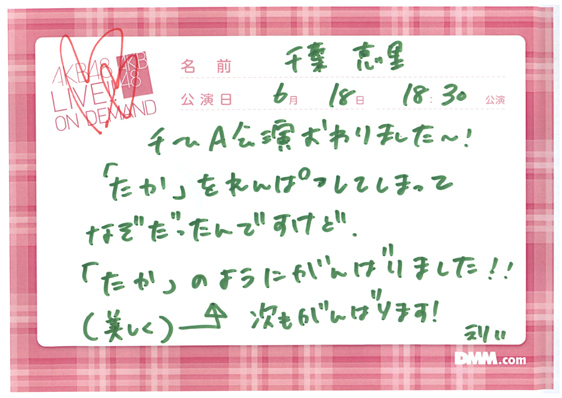 AKB48
LIVE!!
ON DEMAND
AKB
48
名前 千葉 恵里
公演日 6月 18日 18:30 公演
チームA公演おわりました〜!
「たか」をれんぱつしてしまって
なぞだったんですけど.
「たか」のようにがんばりました!!
(美しく) 次もがんばります!
えりい
DMM.com